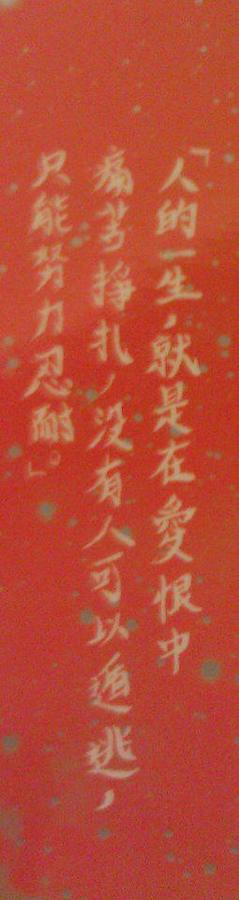 「人的一生，就是在愛恨中
痛苦掙扎，没有人可以遁逃，
只能努力忍耐。」